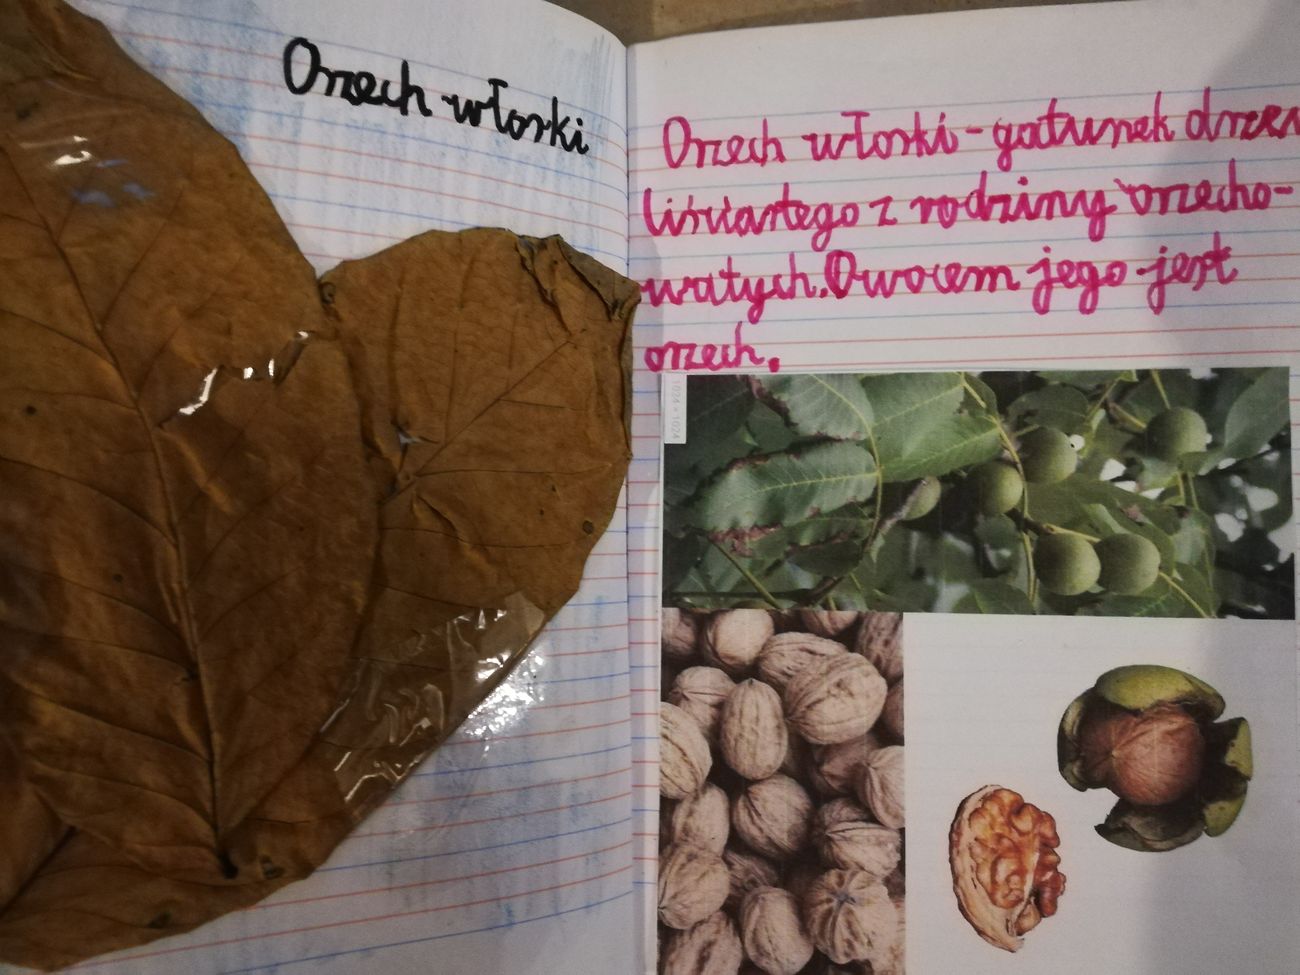 Orzech włoski
Orzech włoski - gatunek drzew
liściastego z rodziny orzecho-
watych. Owocem jego jest
orzech.
1024 × 1024